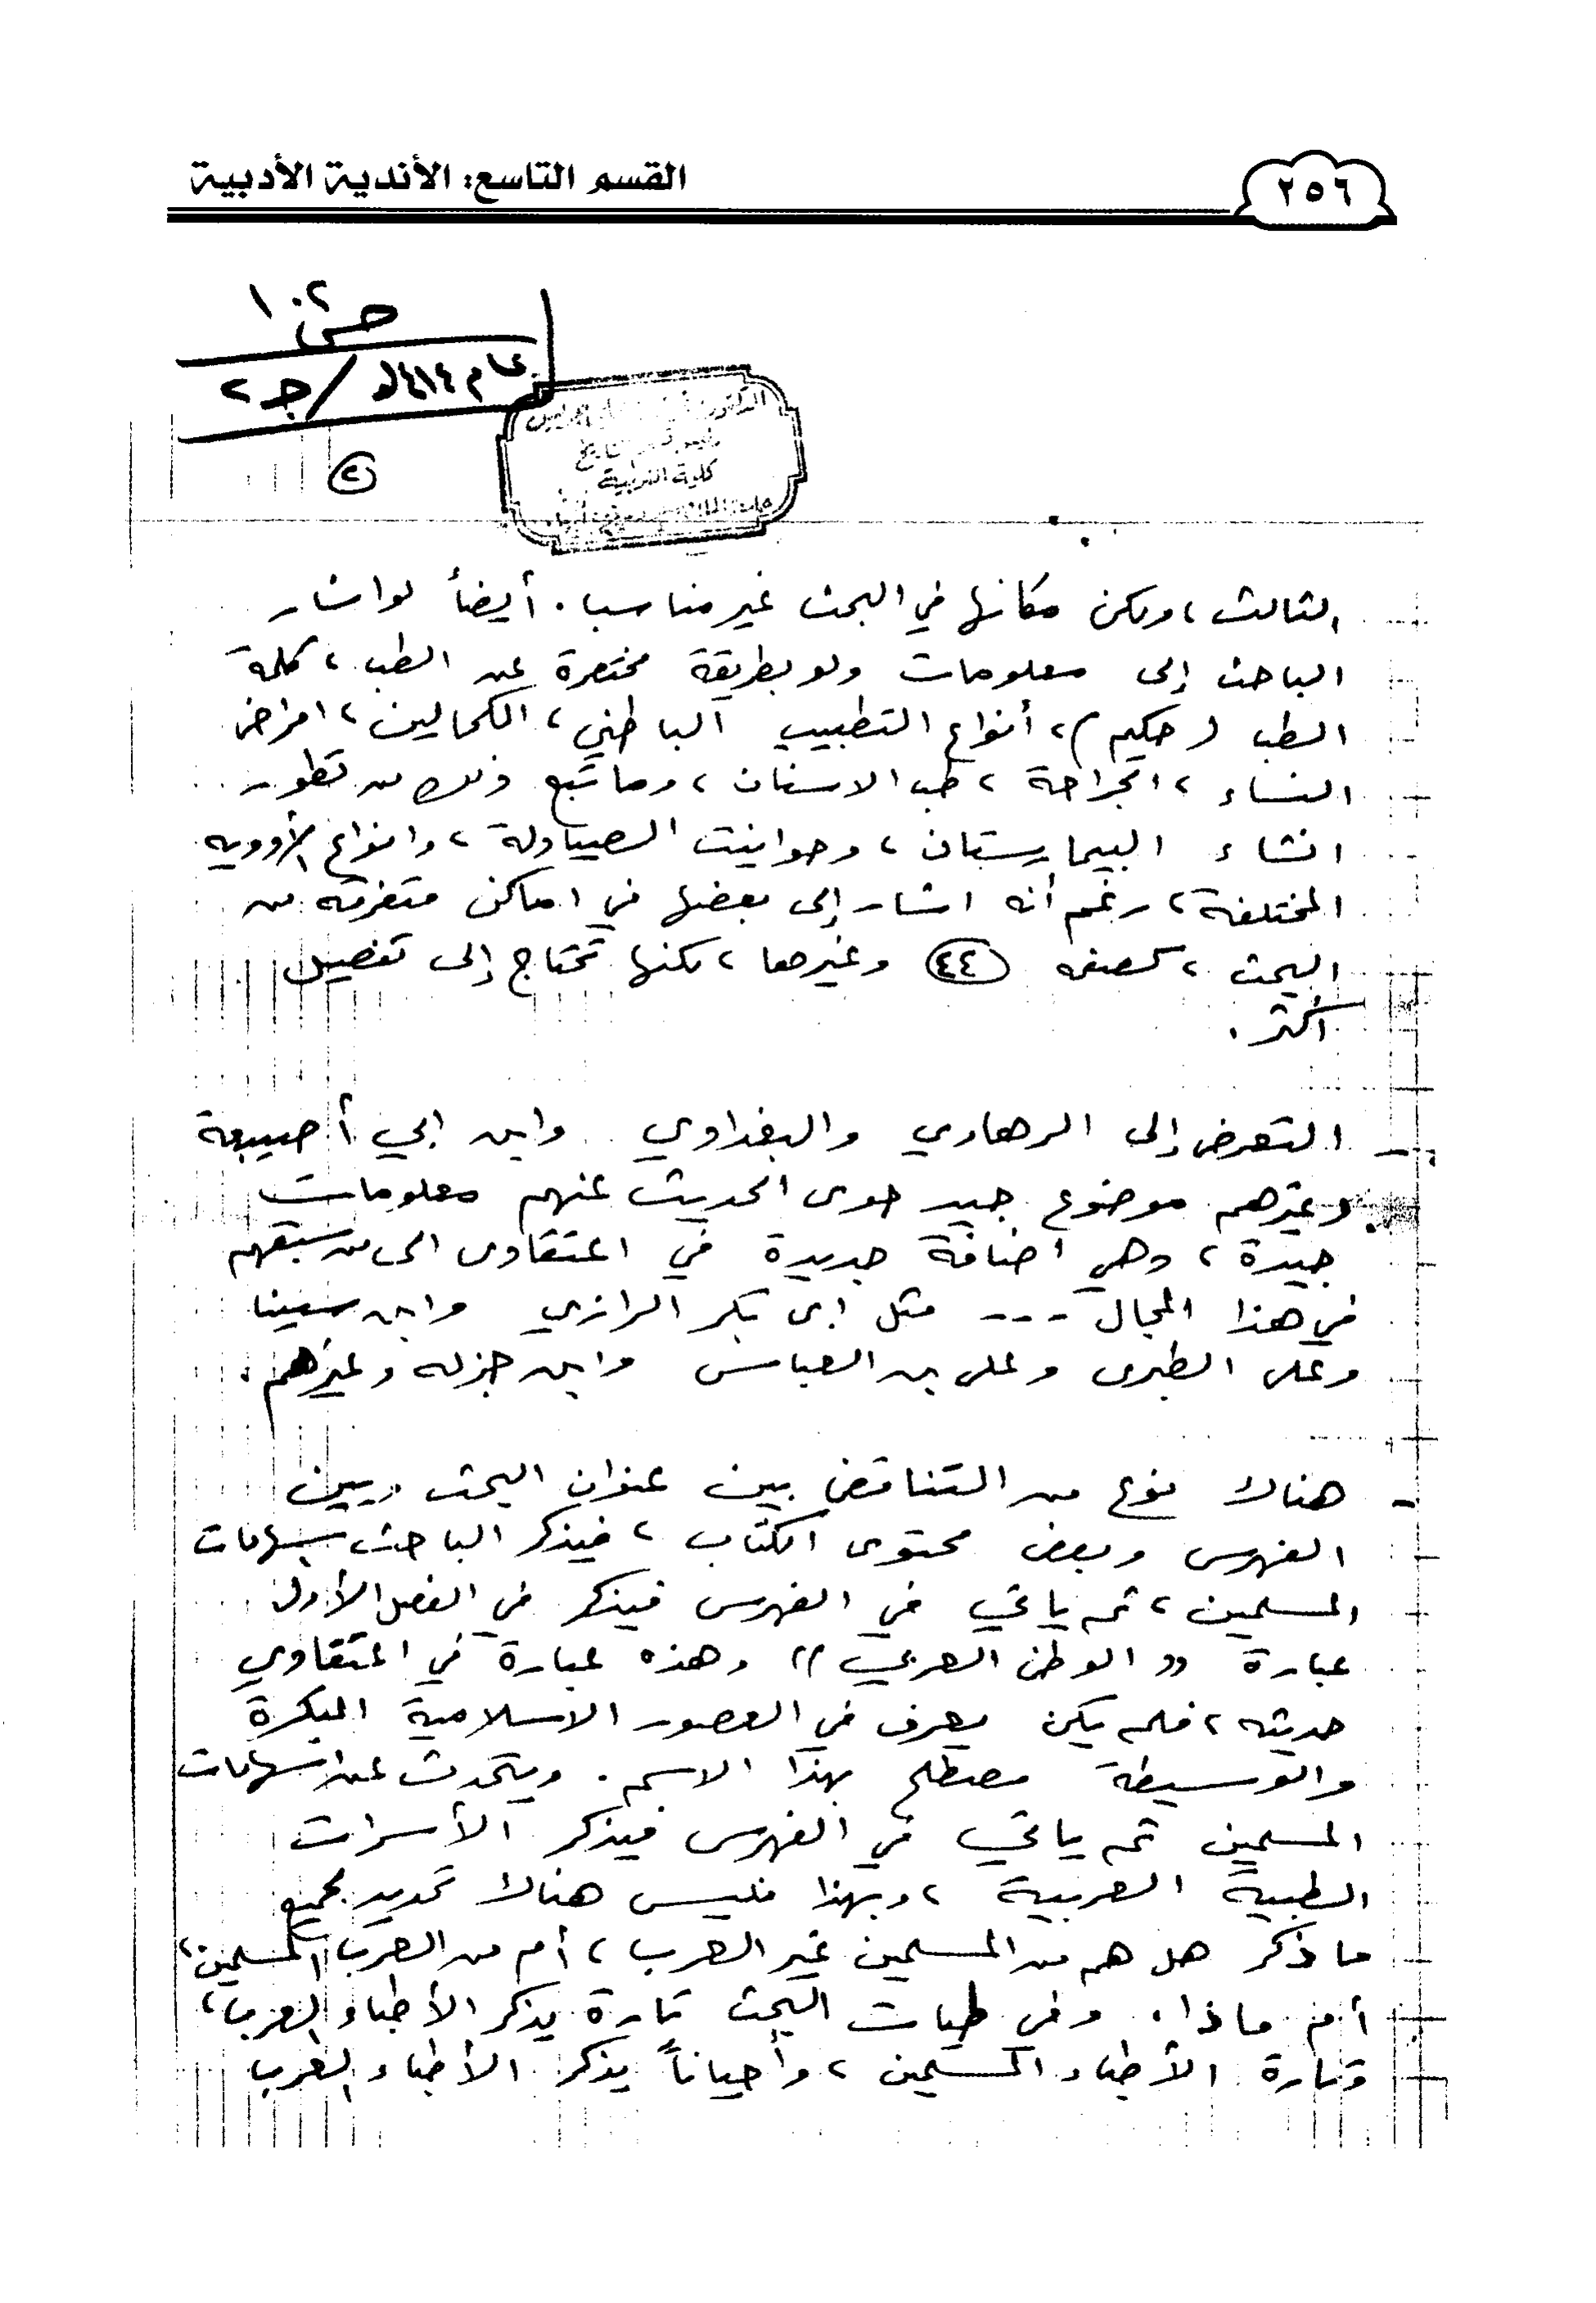 ٢٥٦
القسم التاسع: الأندية الأدبية
عام ١٤١٤هـ / جـ ٢
الدكتور
كلية التربية
الثالث، ولكن مكانها في البحث غير مناسباً. أيضاً لو اشار
الباحث إلى معلومات ولو بطريقة مختصرة عن الطب، كلمة
الطب (حكيم)، أنواع التطبيب الباطني، الكحالين، امراض
النساء، الجراحة، طب الاسنان، وما تبع ذلك من تطور
انشاء البيمارستان، وحوانيت الصيادلة، وانواع الأدويه
المختلفة، رغم أنه اشار إلى بعضها في اماكن متفرقه من
البحث، كصفحه (٤٤) وغيرها، لكنها تحتاج إلى تفصيل
أكثر.
- التعرض إلى الرهاوي والبغدادي وابن ابي أصيبعة
وغيرهم موضوع جيد حوى الحديث عنهم معلومات
جيدة، وهي اضافة جديدة في اعتقادي الى من سبقهم
في هذا المجال --- مثل ابى بكر الرازي وابن سينا
وعلى الطبرى وعلى بن العباس وابن جزله وغيرهم.
- هناك نوع من التناقض بين عنوان البحث وبين
الفهرس وبعض محتوى الكتاب، فيذكر الباحث اسهامات
المسلمين، ثم ياتي في الفهرس فيذكر في الفصل الأول
عبارة ((الوطن العربي)) وهذه عبارة في اعتقادي
حديثه، فلم يكن يعرف في العصور الاسلامية المبكرة
والوسيطة مصطلح بهذا الاسم. ويتحدث عن اسهامات
المسلمين ثم ياتي في الفهرس فيذكر الأسرات
الطبية العربية، وبهذا فليس هناك تحديد لجميع
ما ذكر هل هم من المسلمين غير العرب، أم من العرب المسلمين،
أم ماذا. وفي طيات البحث تارة يذكر الأطباء العرب،
وتارة الأطباء المسلمين، وأحياناً يذكر الأطباء العرب